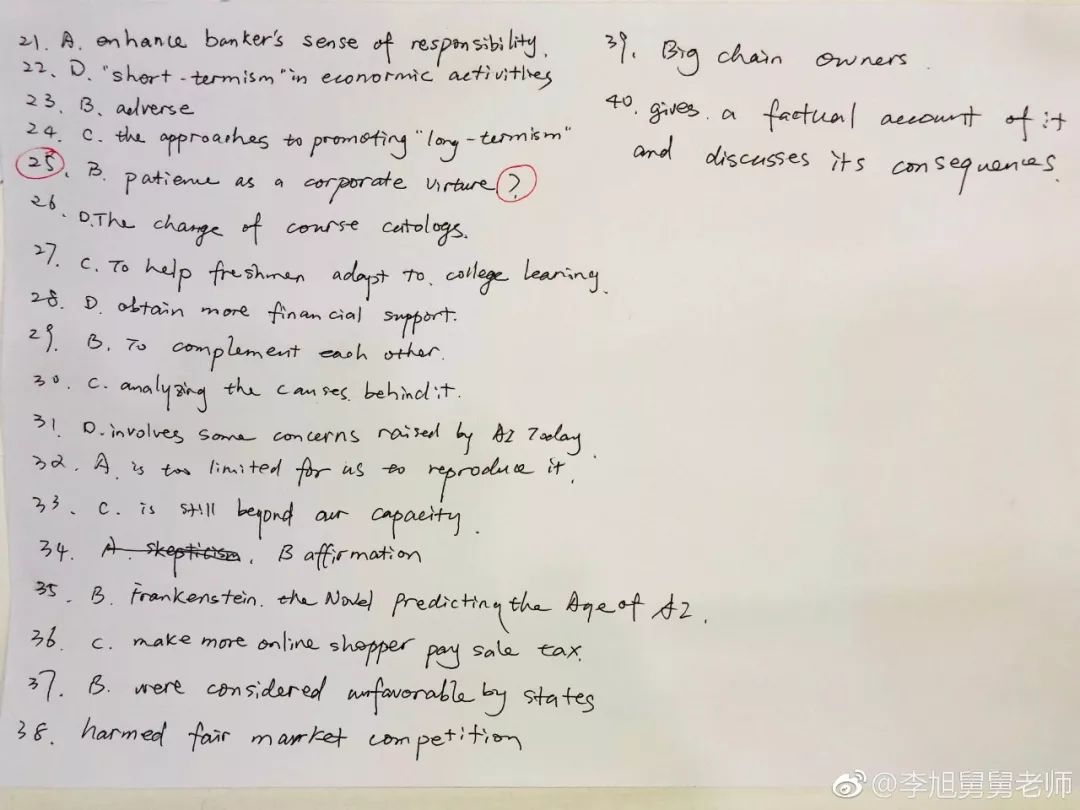 21. A. enhance banker's sense of responsibility.
22. D. "short-termism" in economic activitlies
23. B. adverse
24. C. the approaches to promoting "long-termism"
25. B. patience as a corporate virture ?
26. D. The change of course catologs.
27. C. To help freshmen adapt to college learning.
28. D. obtain more financial support.
29. B. To complement each other.
30. C. analyzing the causes behind it.
31. D. involves some concerns raised by AI Today.
32. A. is too limited for us to reproduce it.
33. C. is still beyond our capacity.
34. A. skepticism. B affirmation
35. B. Frankenstein. the Novel Predicting the Age of AI.
36. C. make more online shopper pay sale tax.
37. B. were considered unfavorable by states
38. harmed fair market competition
39. Big chain owners.
40. gives a factual account of it
and discusses its consequences.
@李旭舅舅老师